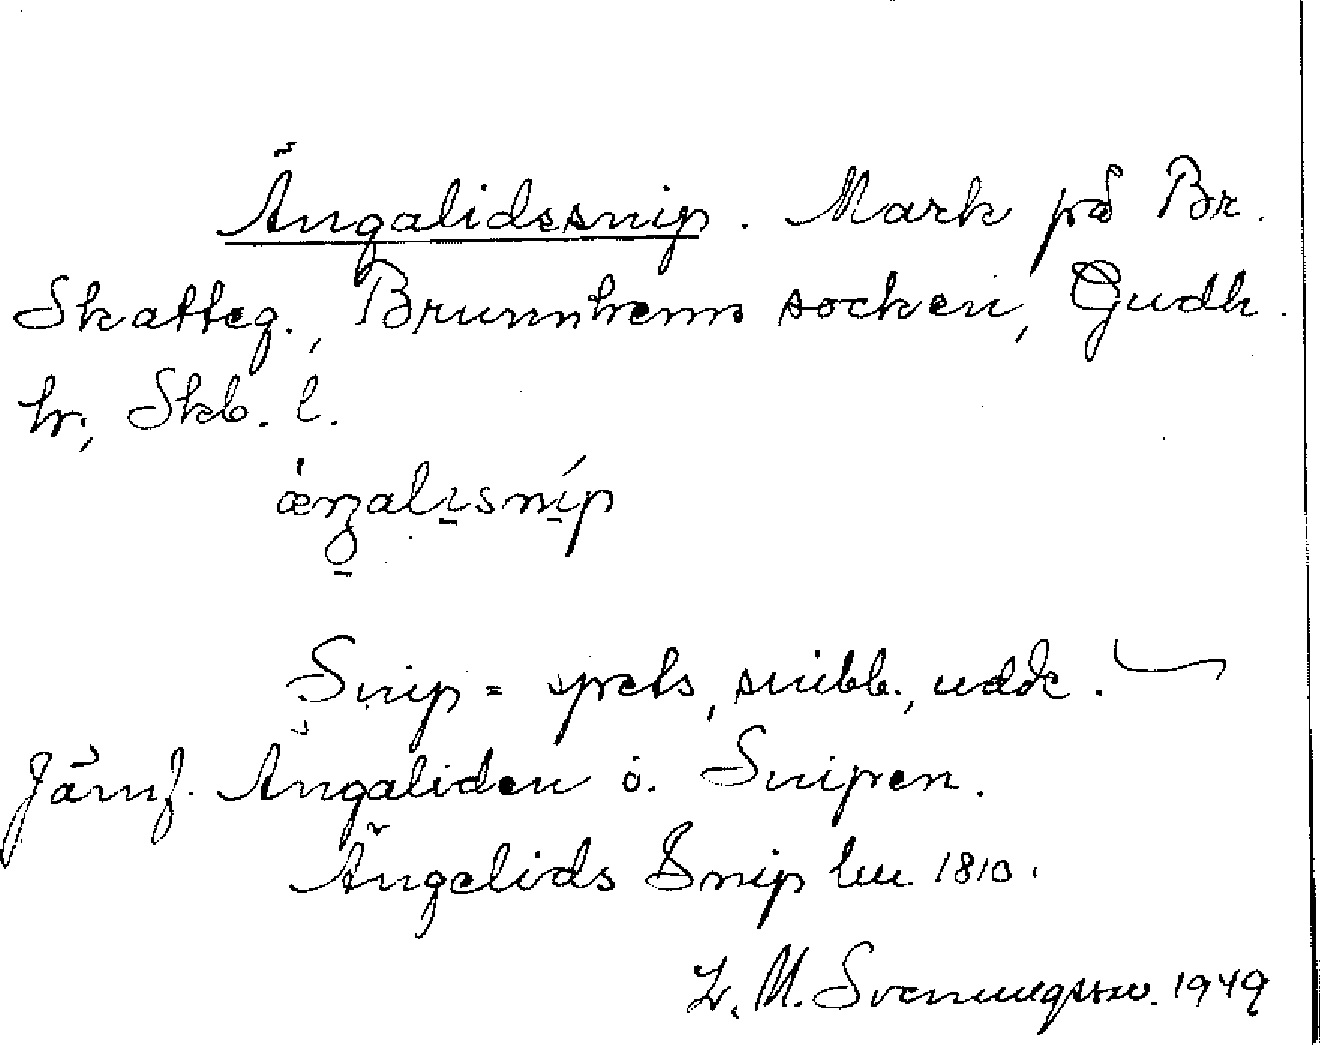 Ängalidssnip. Mark på Br.
Skatteg., Brunnhems socken, Gudh.
hr, Skb. l.
Snip = spets, snibb, udde.
Jämf. Ängaliden o. Snipen.
Ängelids Snip lm 1810.
L. M. Svenungsson. 1949